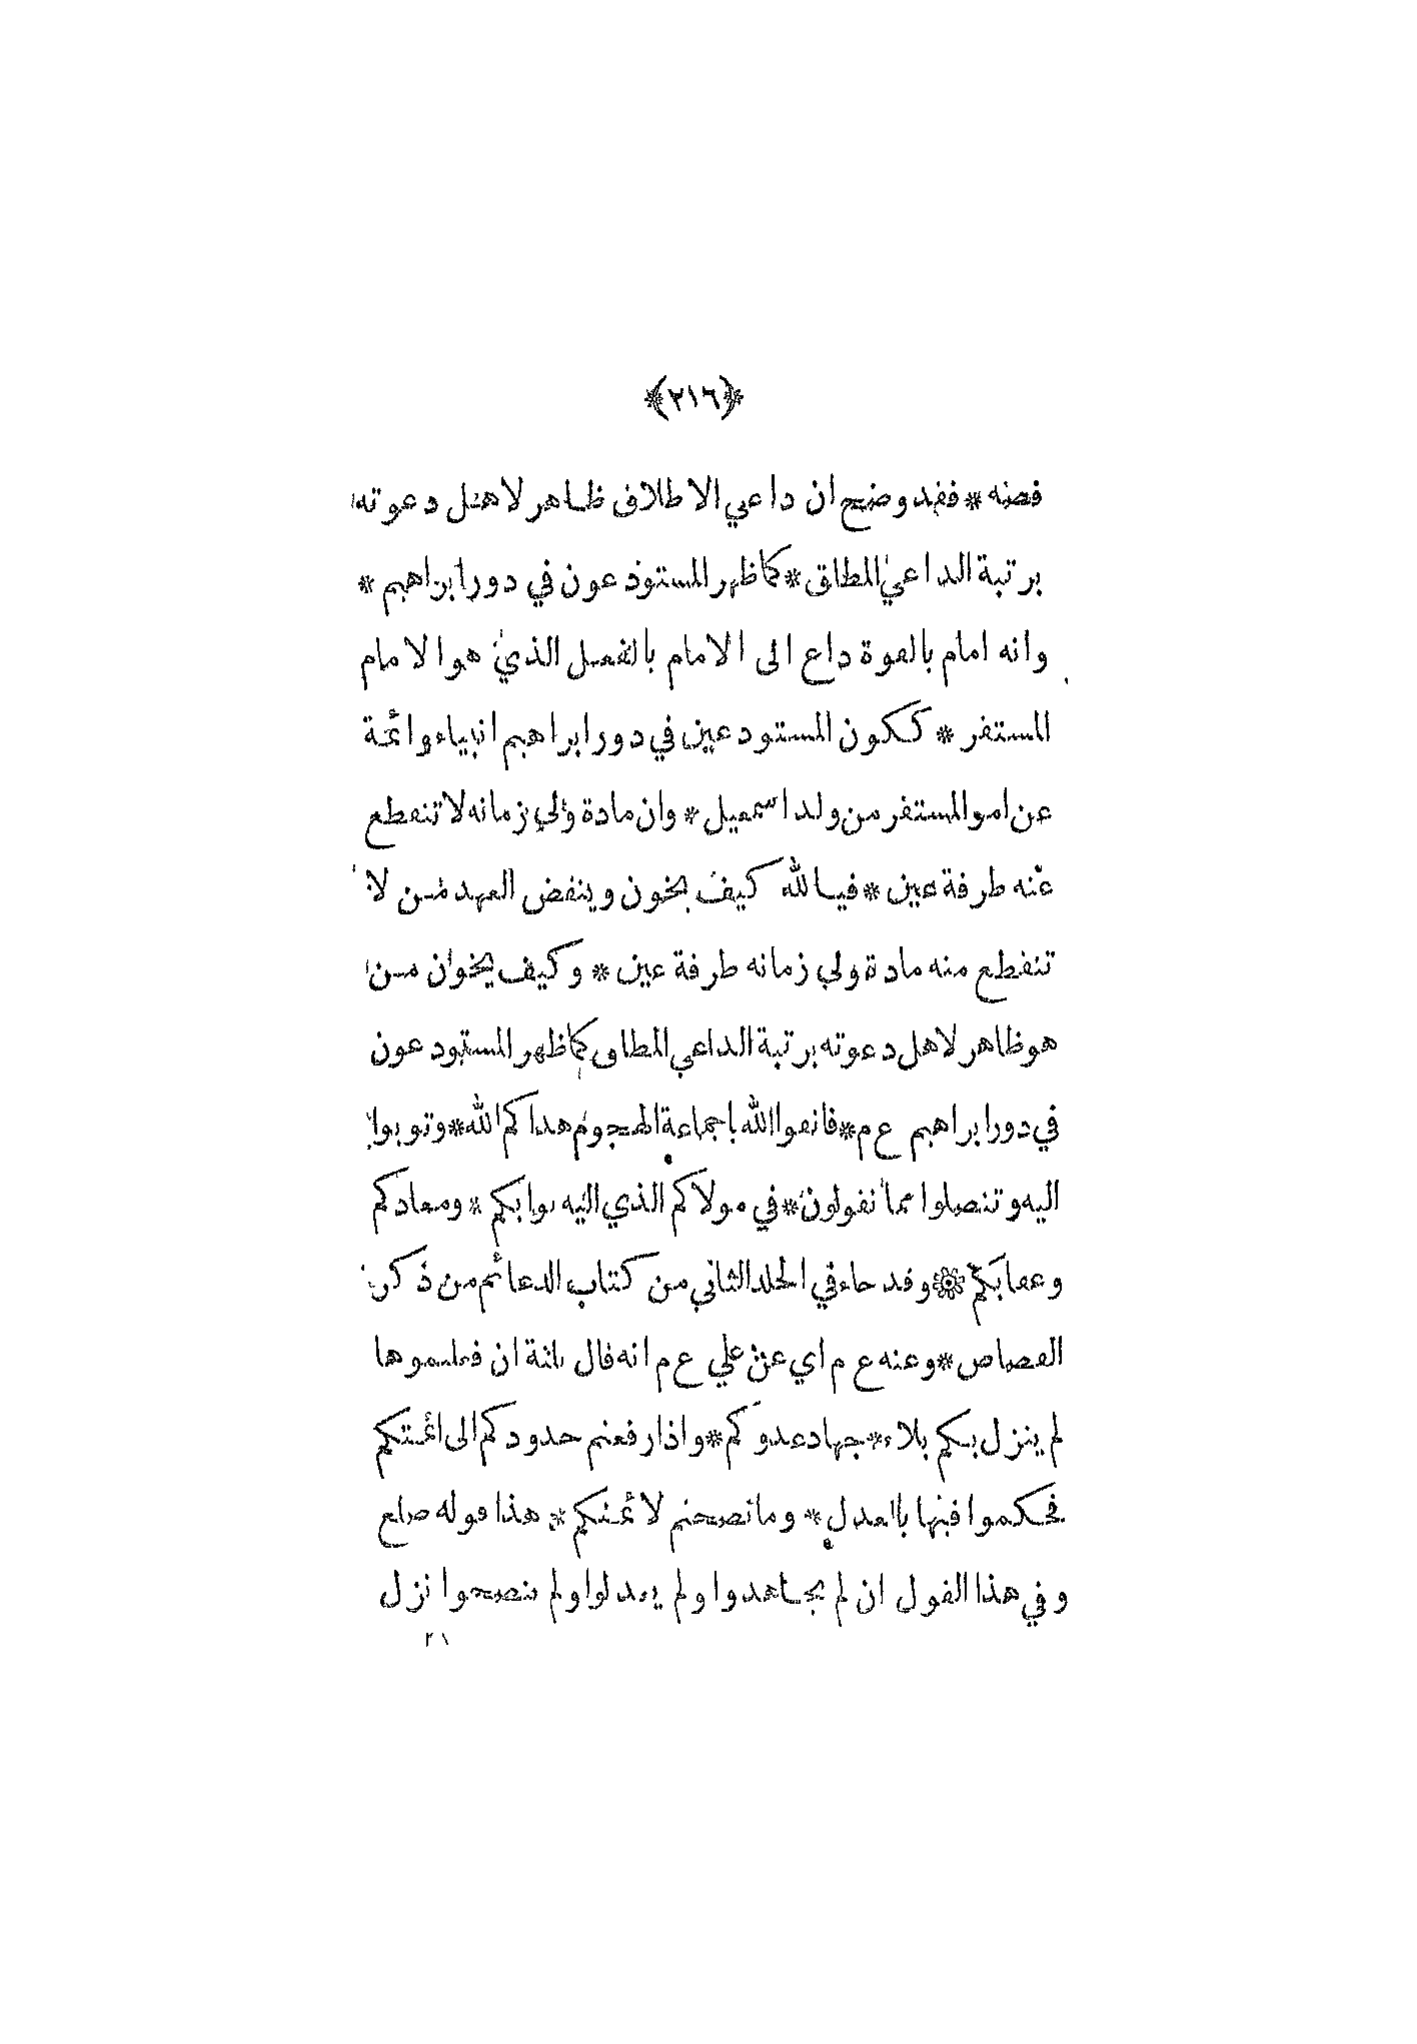 ﴿٢١٦﴾
قصته * فقد وضح ان داعي الاطلاق ظاهر لاهل دعوته
برتبة الداعي المطلق * كما ظهر المستودعون في دور ابراهيم *
وانه امام بالقوة داع الى الامام بالفعل الذي هو الامام
المستقر * ككون المستودعين في دور ابراهيم انبياء وائمة
عن امر المستقر من ولد اسمعيل * وان مادة ولي زمانه لا تنقطع
عنه طرفة عين * فيالله كيف يخون وينقض العهد من لا
تنقطع منه مادة ولي زمانه طرفة عين * وكيف يخون من
هو ظاهر لاهل دعوته برتبة الداعي المطلق كما ظهر المستودعون
في دور ابراهيم ع م * فاتقوا الله يا جماعة الهجوم هداكم الله * وتوبوا
اليه وتنصلوا عما تقولون * في مولاكم الذي اليه ثوابكم * ومعادكم
وعقابكم * وقد جاء في الجلد الثاني من كتاب الدعائم من ذكر
القصاص * وعنه ع م اي عن علي ع م انه قال ثلثة ان فعلتموها
لم ينزل بكم بلاء * جهاد عدوكم * واذا رفعتم حدودكم الى ائمتكم
فحكموا فيها بالعدل * وما نصحتم لائمتكم * هذا قوله صلع
وفي هذا القول ان لم يجاهدوا ولم يعدلوا ولم ينصحوا نزل
٢١